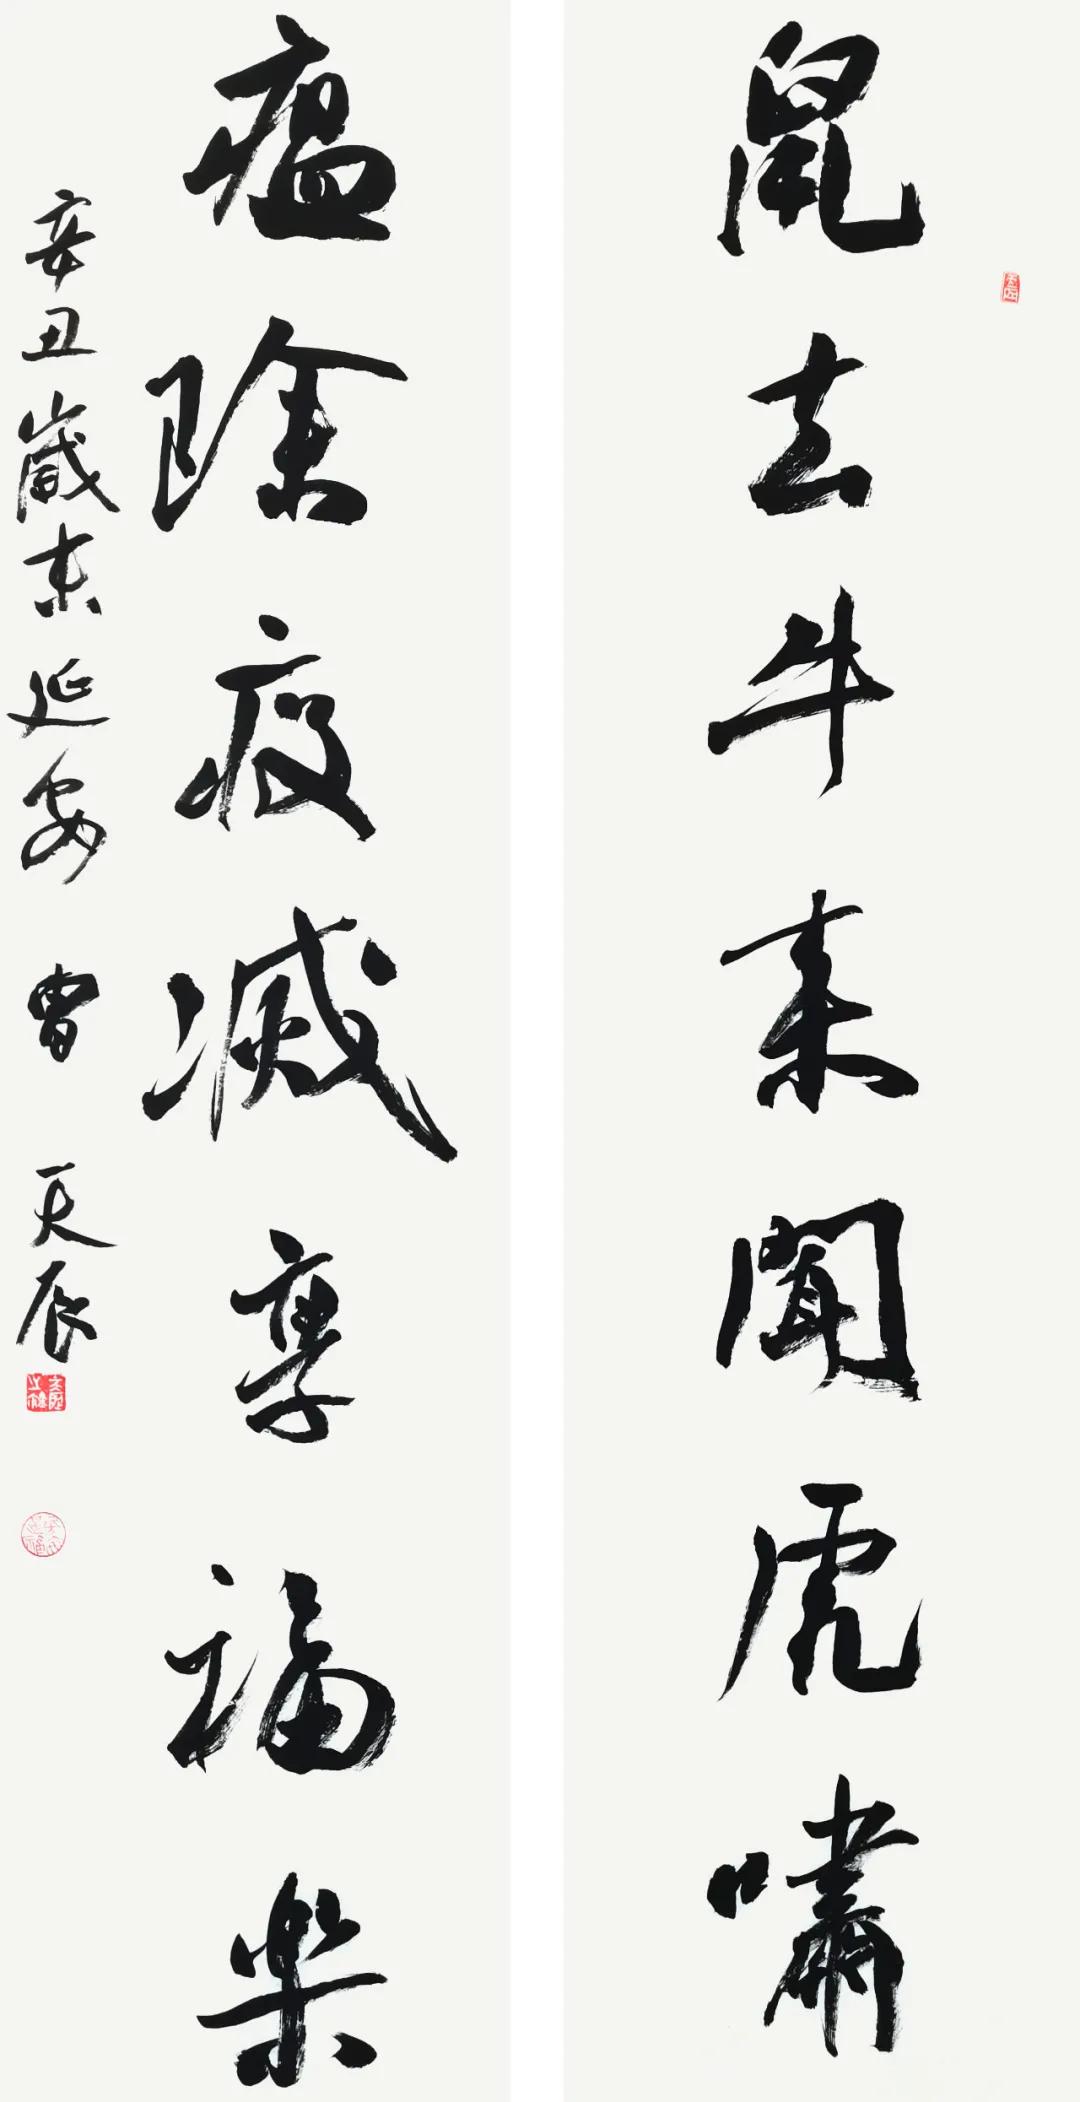 鼠去牛来闻虎啸
瘟除疫灭享福乐
辛丑岁末延安曹天辰